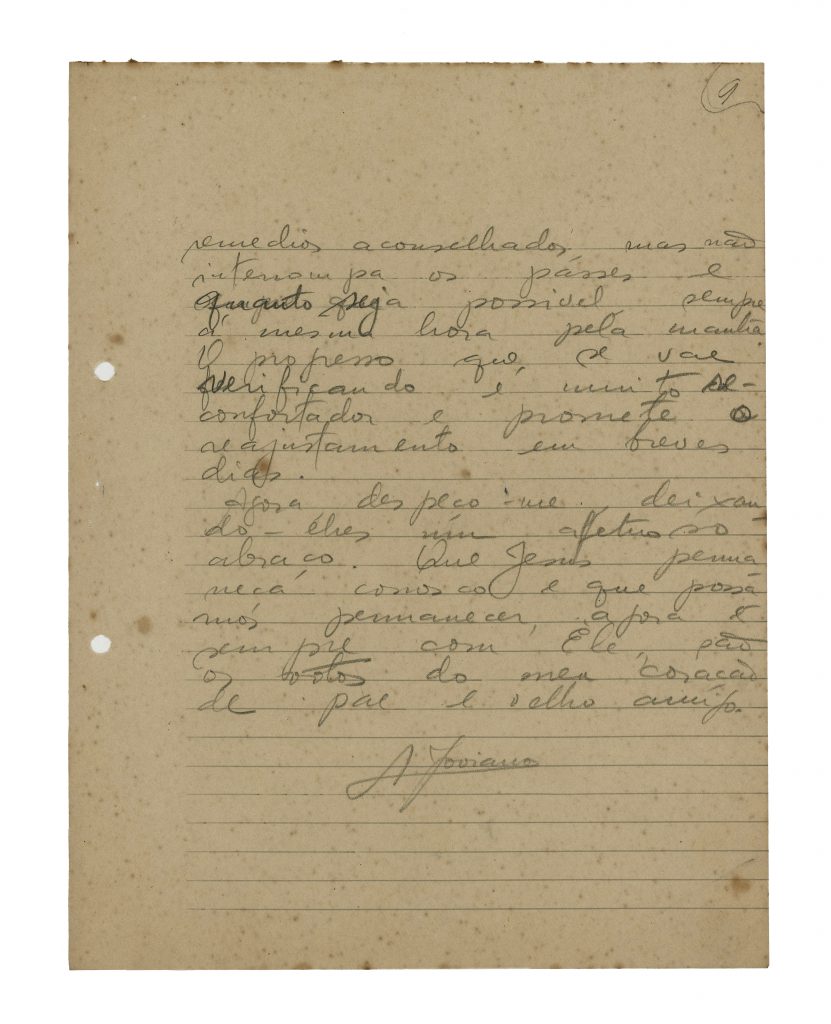 9
remedios aconselhados, mas não
interrompa os pásses e
quanto seja possivel, sempre
á mesma hora pela manhã.
O progresso que se vae
verificando é muito re-
confortador e promete o
reajustamento em breves
dias.
Agora despeço-me, deixan
do-lhes um afetuoso
abraço. Que Jesus perma
neça conosco e que possa
mos permanecer, agora e
sempre com Ele, são
os votos do meu coração
de pae e velho amigo.
A. Joviano